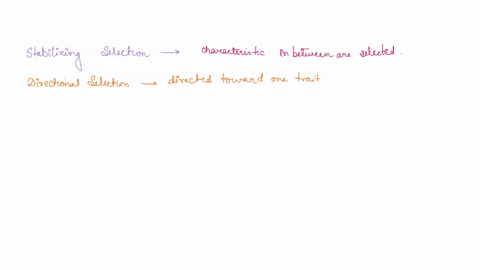 Stabilizing Selection → characteristic in between are selected.
Directional Selection → directed toward one trait